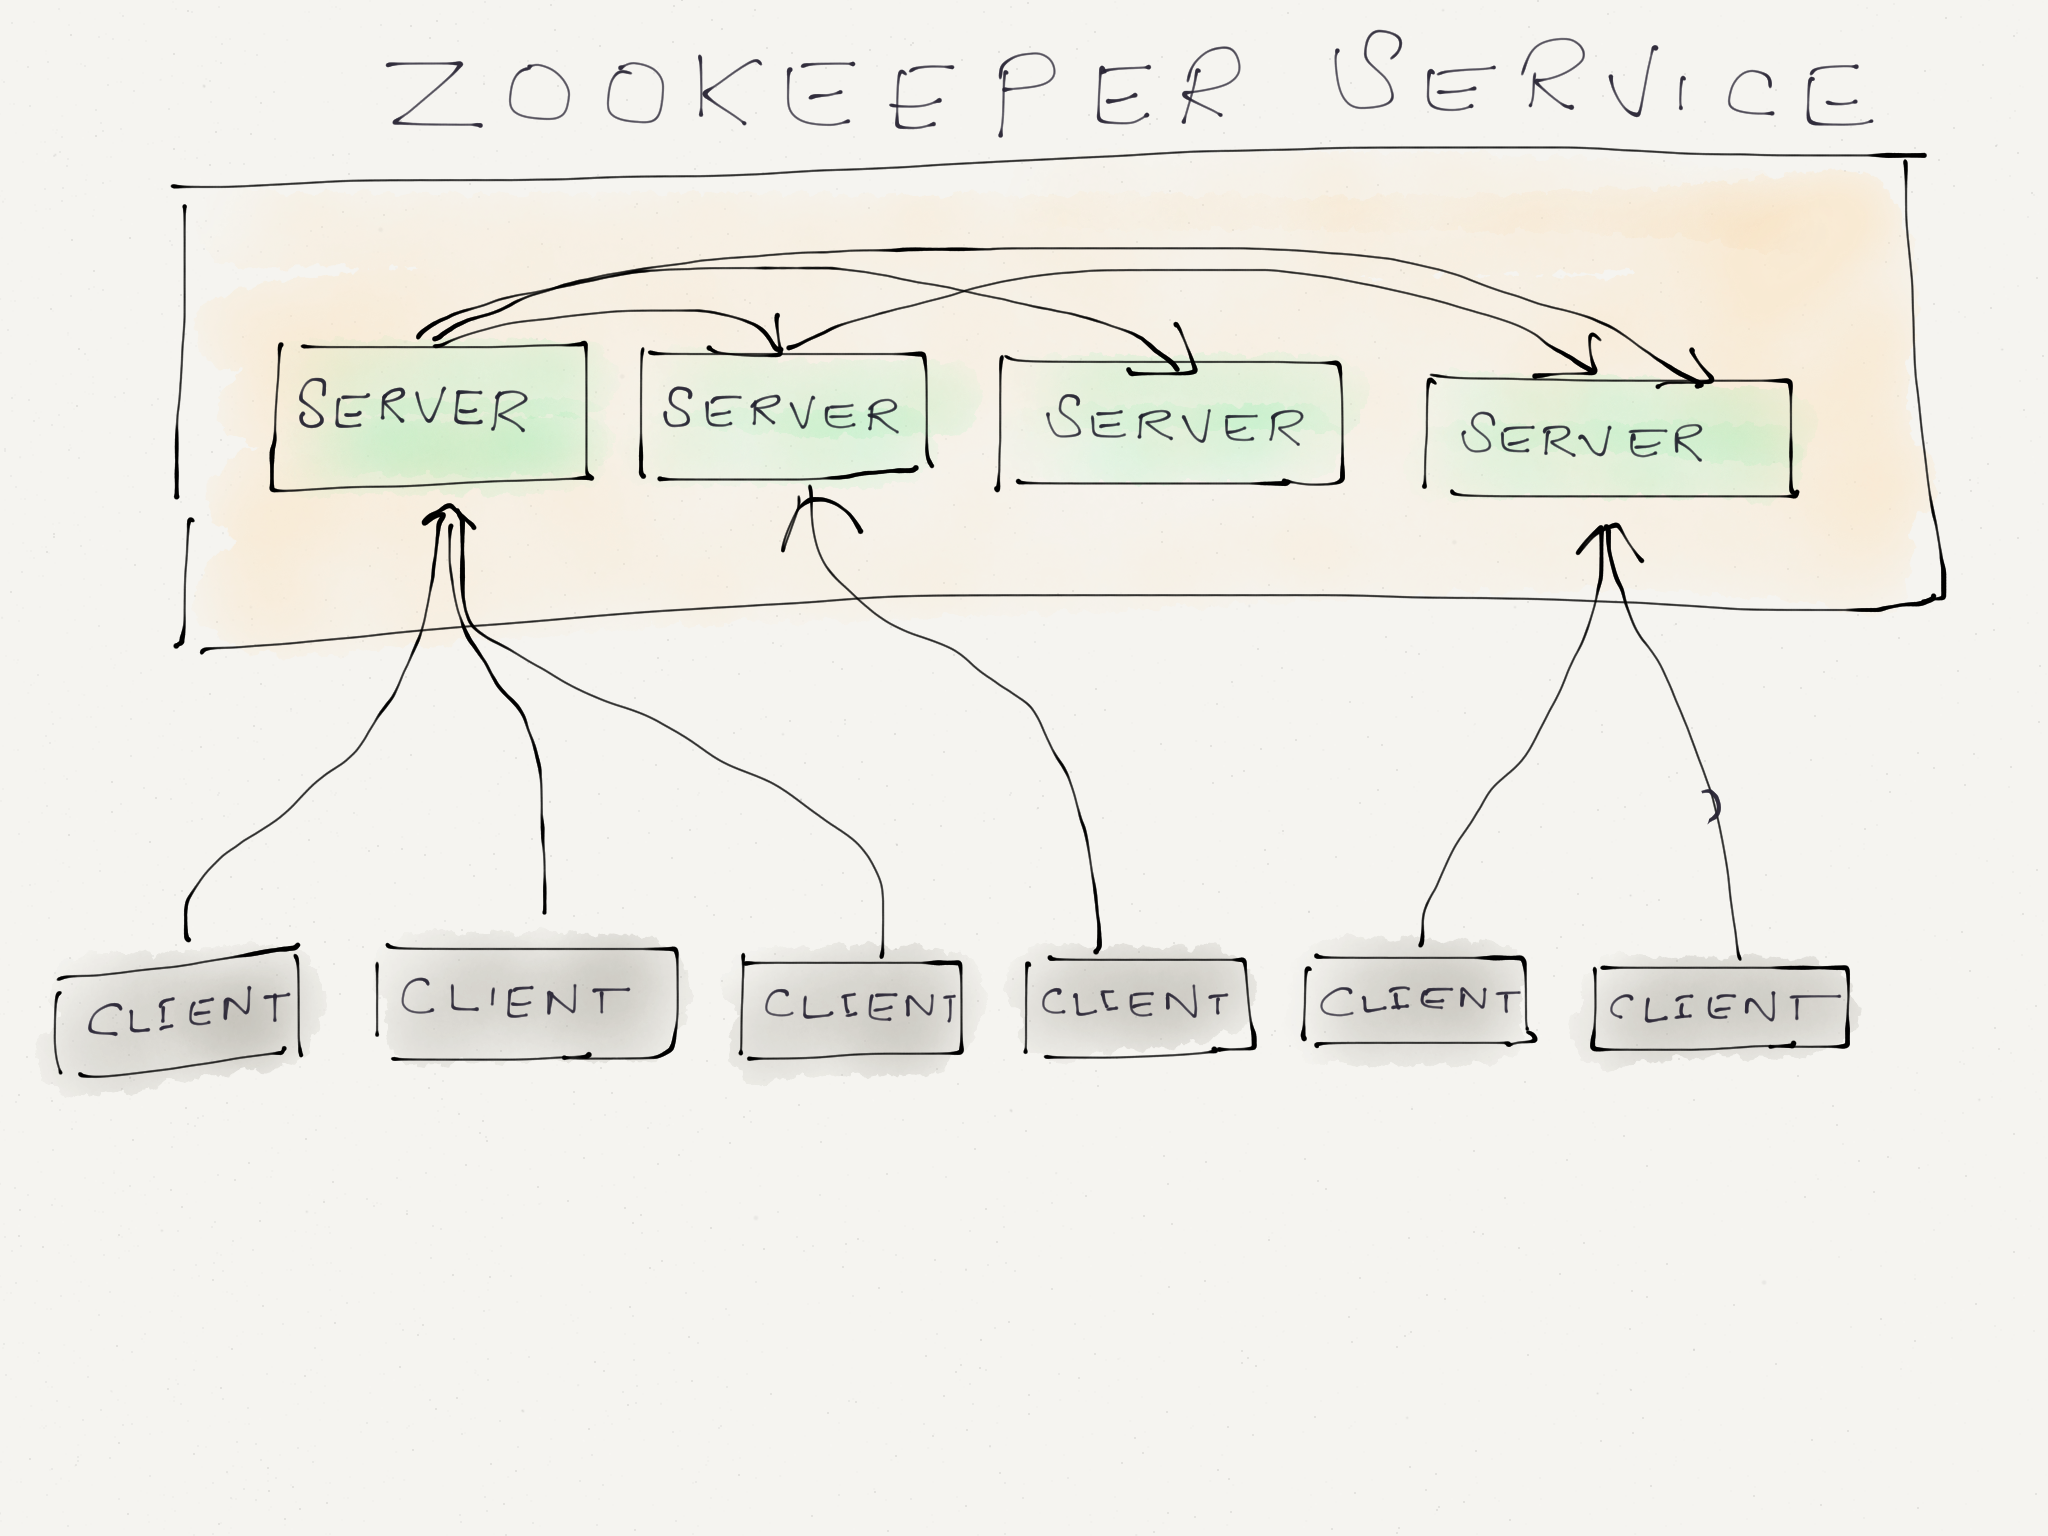 ZOOKEEPER SERVICE
SERVER SERVER SERVER SERVER
CLIENT CLIENT CLIENT CLIENT CLIENT CLIENT